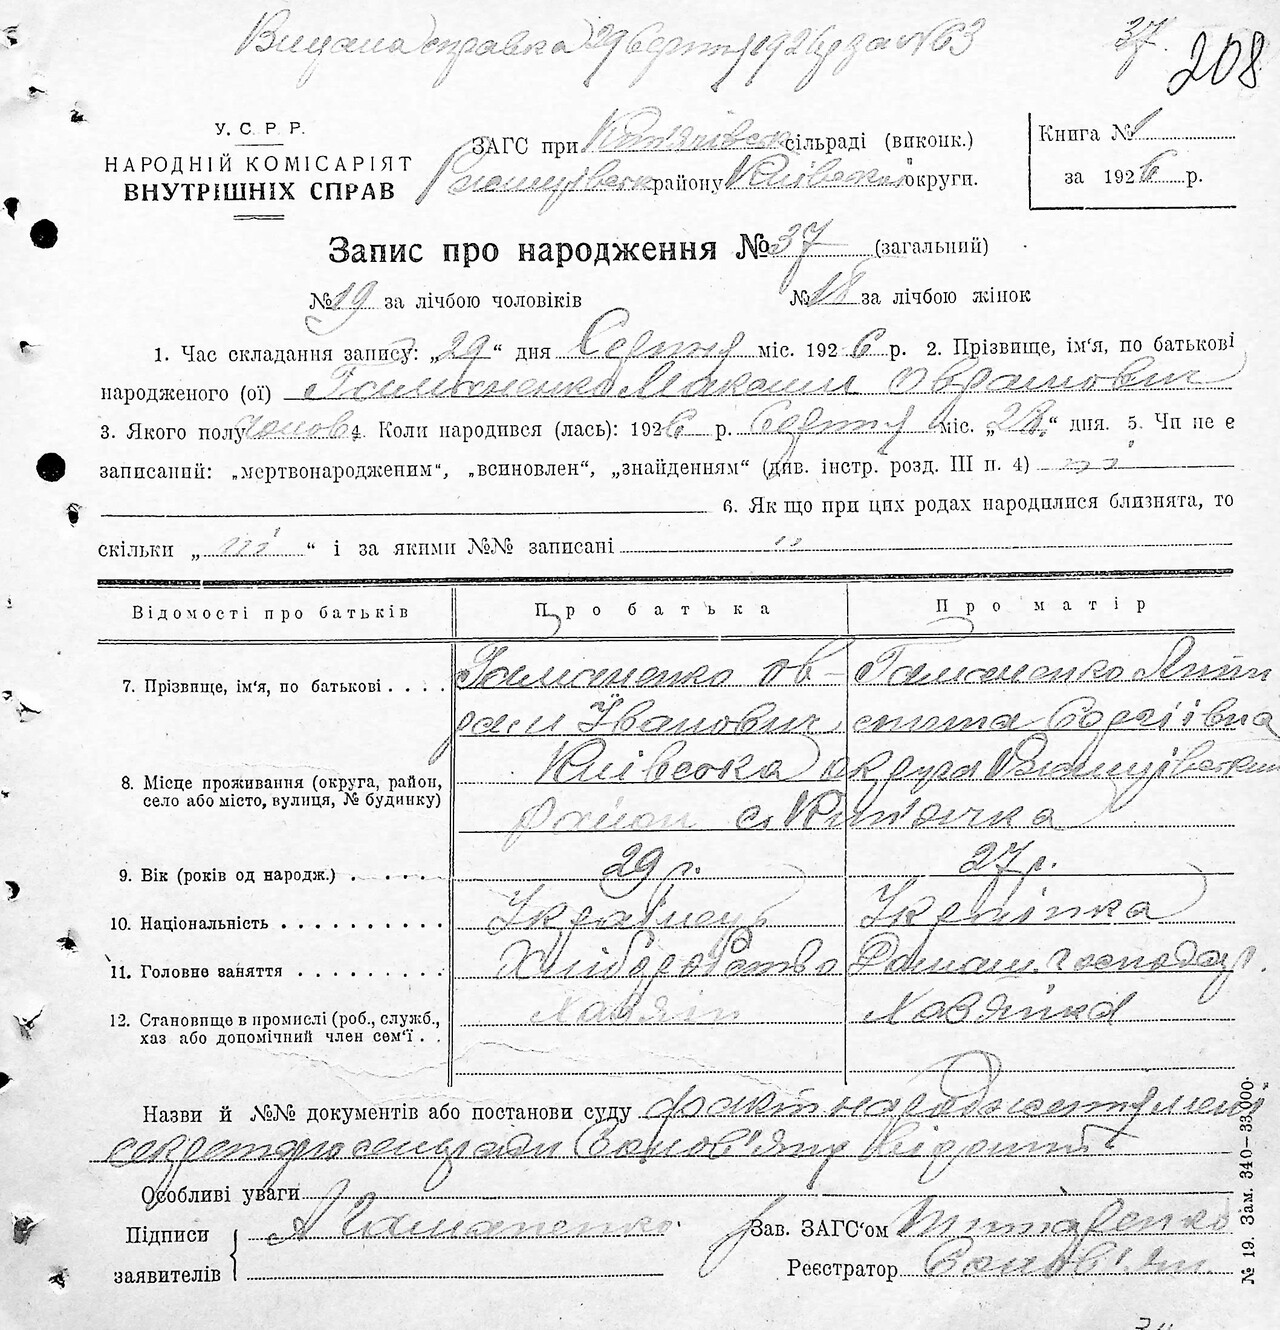 Видана справка 29 серпня 1926 р за №63
37.
208
У. С. Р. Р.
НАРОДНІЙ КОМІСАРІЯТ
ВНУТРІШНІХ СПРАВ
ЗАГС при сільраді (виконк.)
району Київської округи.
Книга № 1
за 1926 р.
Запис про народження № 37 (загальний)
№ 19 за лічбою чоловіків № 18 за лічбою жінок
1. Час складання запису: „29“ дня Серпня міс. 1926 р. 2. Прізвище, ім‘я, по батькові
народженого (ої) Гамоненко Максим Оврамович
3. Якого полу чолов 4. Коли народився (лась): 1926 р. Серпня міс. „28“ дня. 5. Чи не є
записаний: „мертвонародженим“, „всиновлен“, „знайденням“ (див. інстр. розд. III п. 4) ні
6. Як що при цих родах народилися близнята, то
скільки „ ні “ і за якими №№ записані "
Відомості про батьків Про батька Про матір
7. Прізвище, ім‘я, по батькові . . . . Гамоненко Ов- Гамоненко
рам Іванович Сергіівна
8. Місце проживання (округа, район, Київська округа
село або місто, вулиця, № будинку) район с.
9. Вік (років од народж.) . . . . . 29 г. 27 г.
10. Національність . . . . . . . . . . Українець Українка
11. Головне заняття . . . . . . . . . Хліборобство Домаш. господар.
12. Становище в промислі (роб., служб., Хазяін Хазяйка
хаз або допомічний член сем‘ї . .
Назви й №№ документів або постанови суду факт народження мені
секретарю сельради відомий
Особливі уваги
Підписи
заявителів
А Гамоненко
Зав. ЗАГС‘ом Титаренко
Реєстратор
№ 19. Зам. 340—33,000.